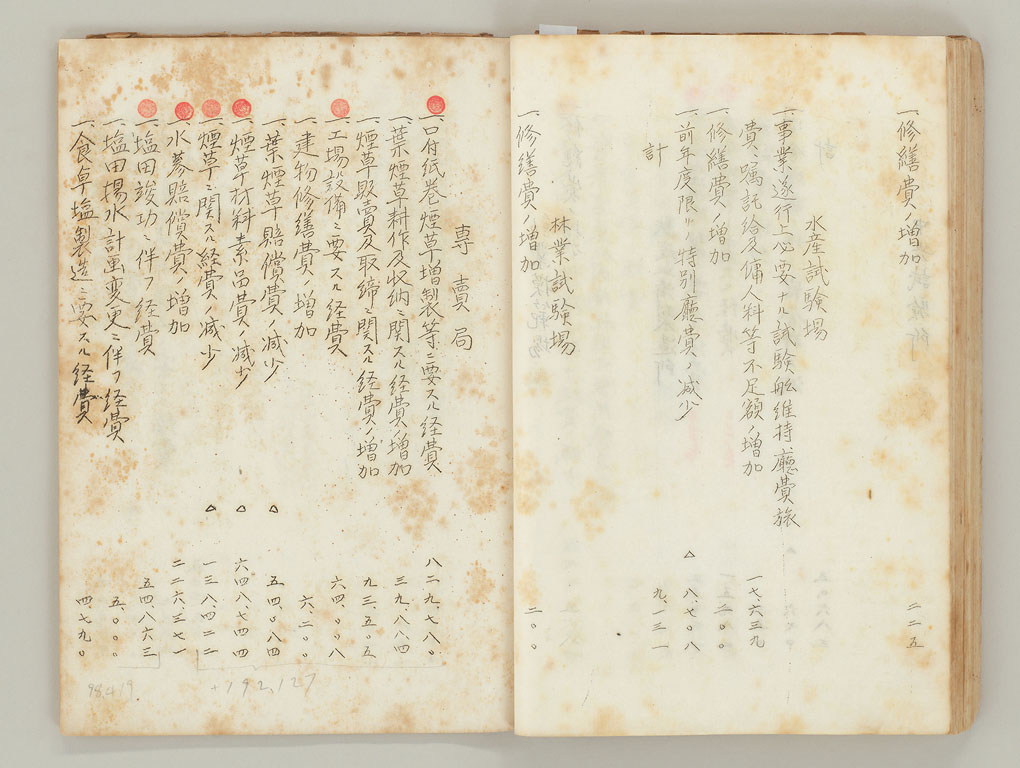 一、修繕費ノ増加 二二五
水産試験場
一、事業遂行上必要ナル試験船維持廳費旅
費、嘱託給及傭人料等不足額ノ増加 一七、六三九
一、修繕費ノ増加 二〇〇
一、前年度限リノ特別廳費ノ減少 △ 八、七〇八
計 九、一三一
林業試験場
一、修繕費ノ増加 二〇〇
専賣局
一、口付紙巻煙草増製等ニ要スル経費 八二九、七八〇
一、葉煙草耕作及収納ニ関スル経費ノ増加 三九、八八四
一、煙草販賣及取締ニ関スル経費ノ増加 九三、五〇五
一、工場設備ニ要スル経費 六四、〇〇八
一、建物修繕費ノ増加 六、二〇〇
一、葉煙草賠償費ノ減少 △ 五四、〇八四
一、煙草材料素品費ノ減少 △ 六四八、七四四
一、煙草ニ関スル経費ノ減少 △ 一三八、四二二
一、水蔘賠償費ノ増加 二二六、三七一
一、塩田竣功ニ伴フ経費 五四、八六三
一、塩田揚水計畫変更ニ伴フ経費 五、〇〇〇
一、食卓塩製造ニ要スル経費 四、七九〇
+192,127
98,419